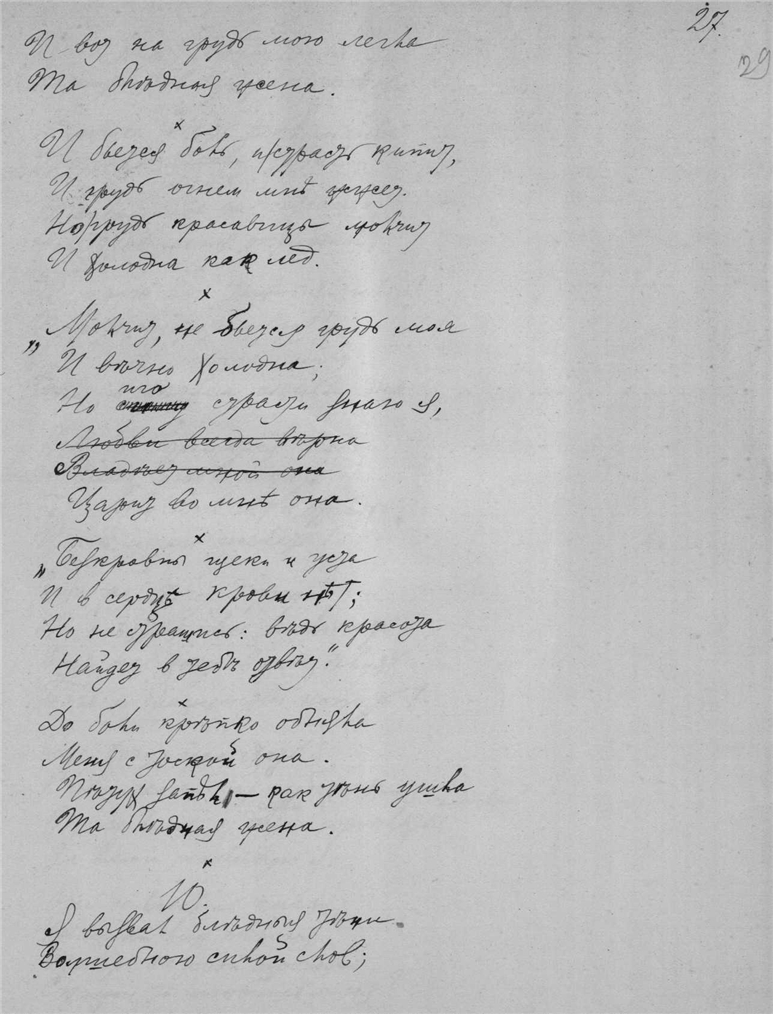 27.
29
И вот на грудь мою легла
Та блѣдная жена.
х
И бьется боль, и страсть кипит,
И грудь огнем мнѣ жжет.
Но грудь красавицы молчит
И холодна как лед.
х
„Молчит, не бьется грудь моя
И вѣчно холодна;
Но иго страсти знаю я,
Любви всегда вѣрна
Владѣет мной она
Царит во мнѣ она.
х
„Безкровны щеки и уста
И в сердцѣ крови нѣт;
Но не страшись: вѣдь красота
Найдет в тебѣ отвѣт".
х
До боли крѣпко обняла
Меня с тоской она.
Пѣтух запѣл, — как тѣнь ушла
Та блѣдная жена.
х
10.
Я вызвал блѣдныя тѣни
Волшебною силой слов;